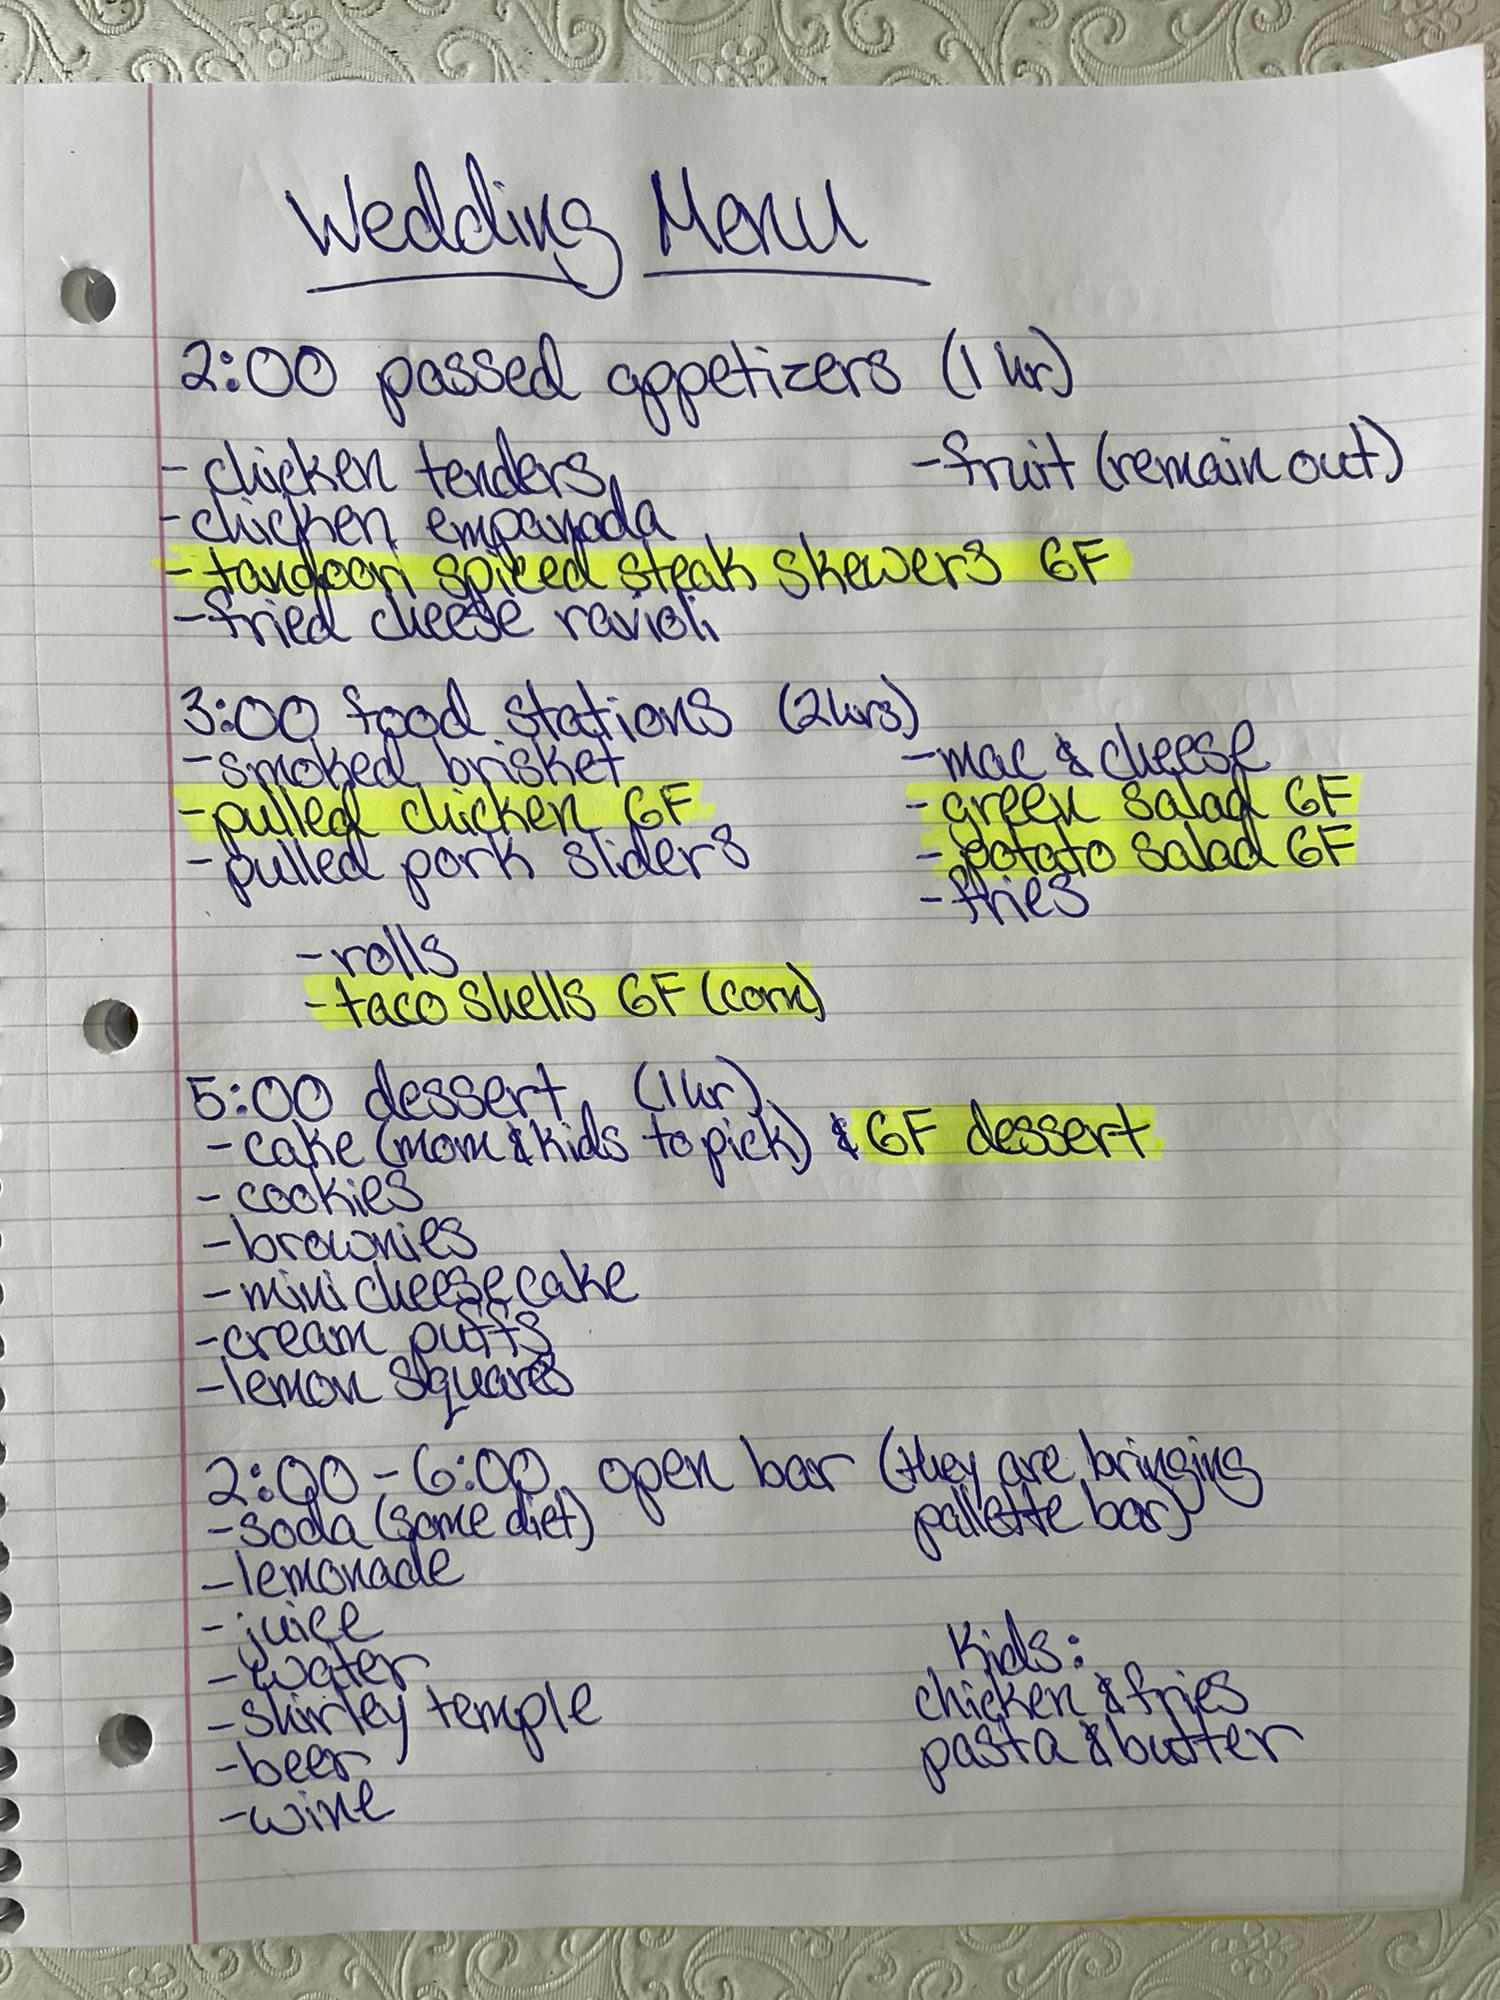 Wedding Menu
2:00 passed appetizers (1 hr)
- chicken tenders
- chicken empanada
- tandoori spiced steak skewers GF
- fried cheese ravioli
- fruit (remain out)
3:00 food stations (2hrs)
- smoked brisket
- pulled chicken GF
- pulled pork sliders
- mac & cheese
- green salad GF
- potato salad GF
- fries
- rolls
- taco shells GF (corn)
5:00 dessert (1 hr)
- cake (mom & kids to pick) & GF dessert
- cookies
- brownies
- mini cheesecake
- cream puffs
- lemon squares
2:00 - 6:00 open bar (they are bringing
pallette bar)
- soda (some diet)
- lemonade
- juice
- water
- shirley temple
- beer
- wine
Kids:
chicken & fries
pasta & butter